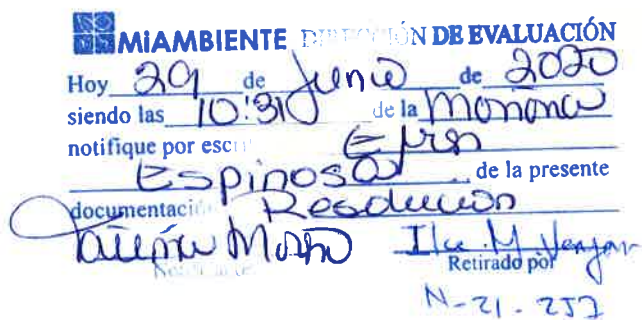 MiAMBIENTE DIRECCIÓN DE EVALUACIÓN
Hoy 29 de Junio de 2020
siendo las 10:31 de la Monona
notifique por escri
Espinosa de la presente
documentació Resolucion
Retirado por
N-21-257